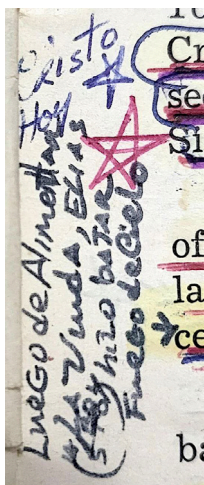 Cristo
Hoy
LueGo de Alimentar
La Viuda, ELias
hizo baJar
Fuego de cielo
Cr
se
Si
of
la
ce
ba